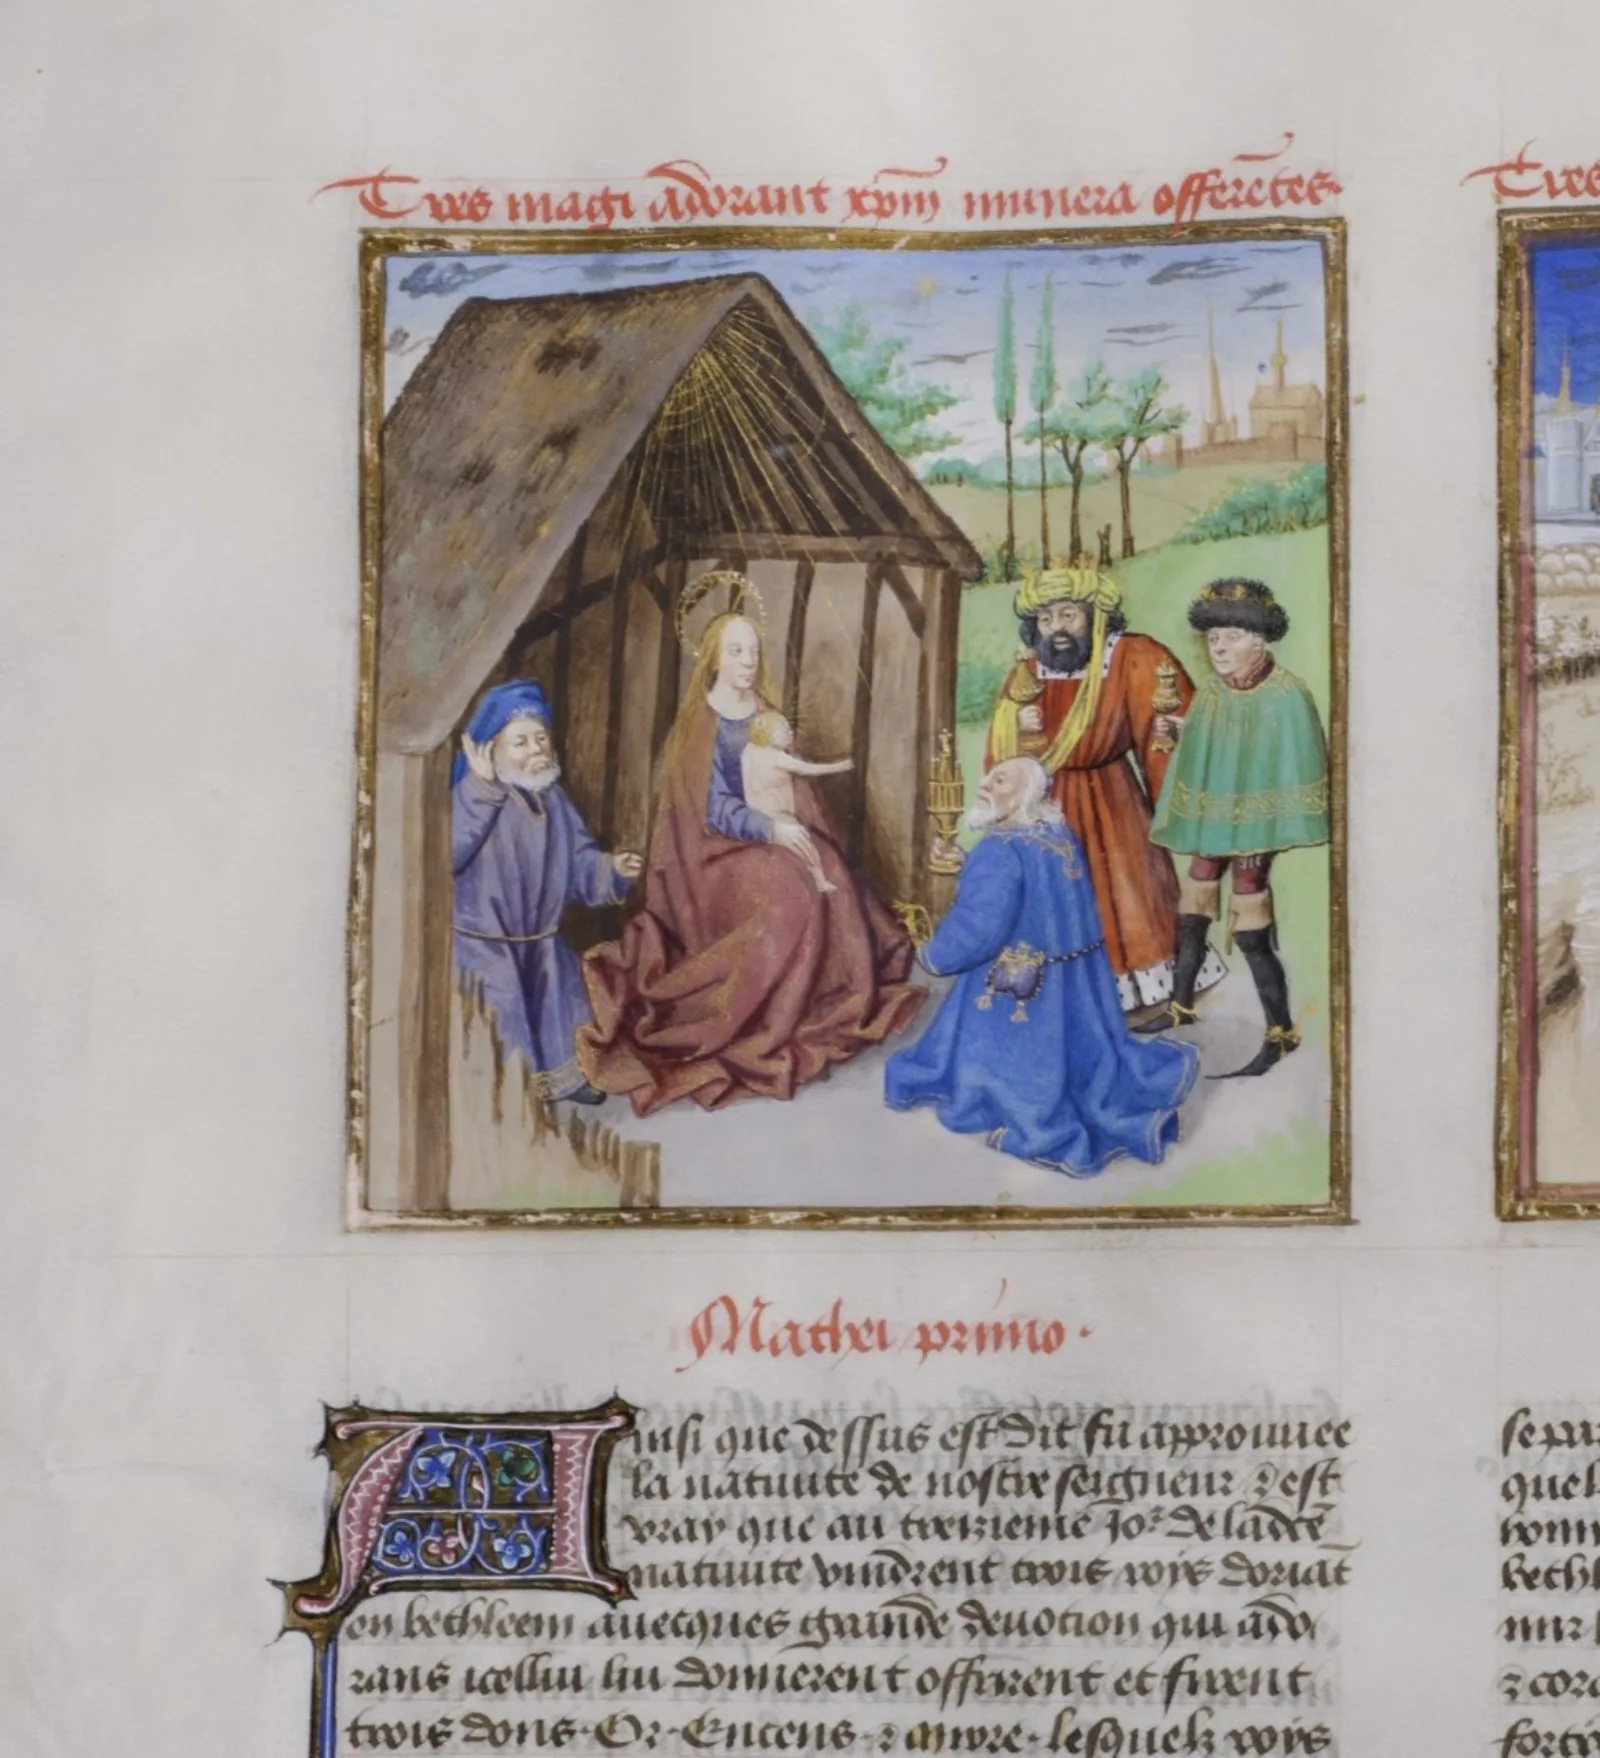 Tres magi adorant xpm̄ munera offerētes.
Tres
Mathei primo.
Ainsi que dessus est dit fu approuuee
la natiuite de nostre seigneur ⁊ est
vray que au treizieme Jor de ladc̄e
natiuite vindrent trois roys doriāt
en bethleem auecques grande deuotion qui ado
rans icellui lui donnerent offrirent et firent
trois dons. Or. Encens. ⁊ mirre. lesquelz roys
se par
quel
bethl
⁊ cor